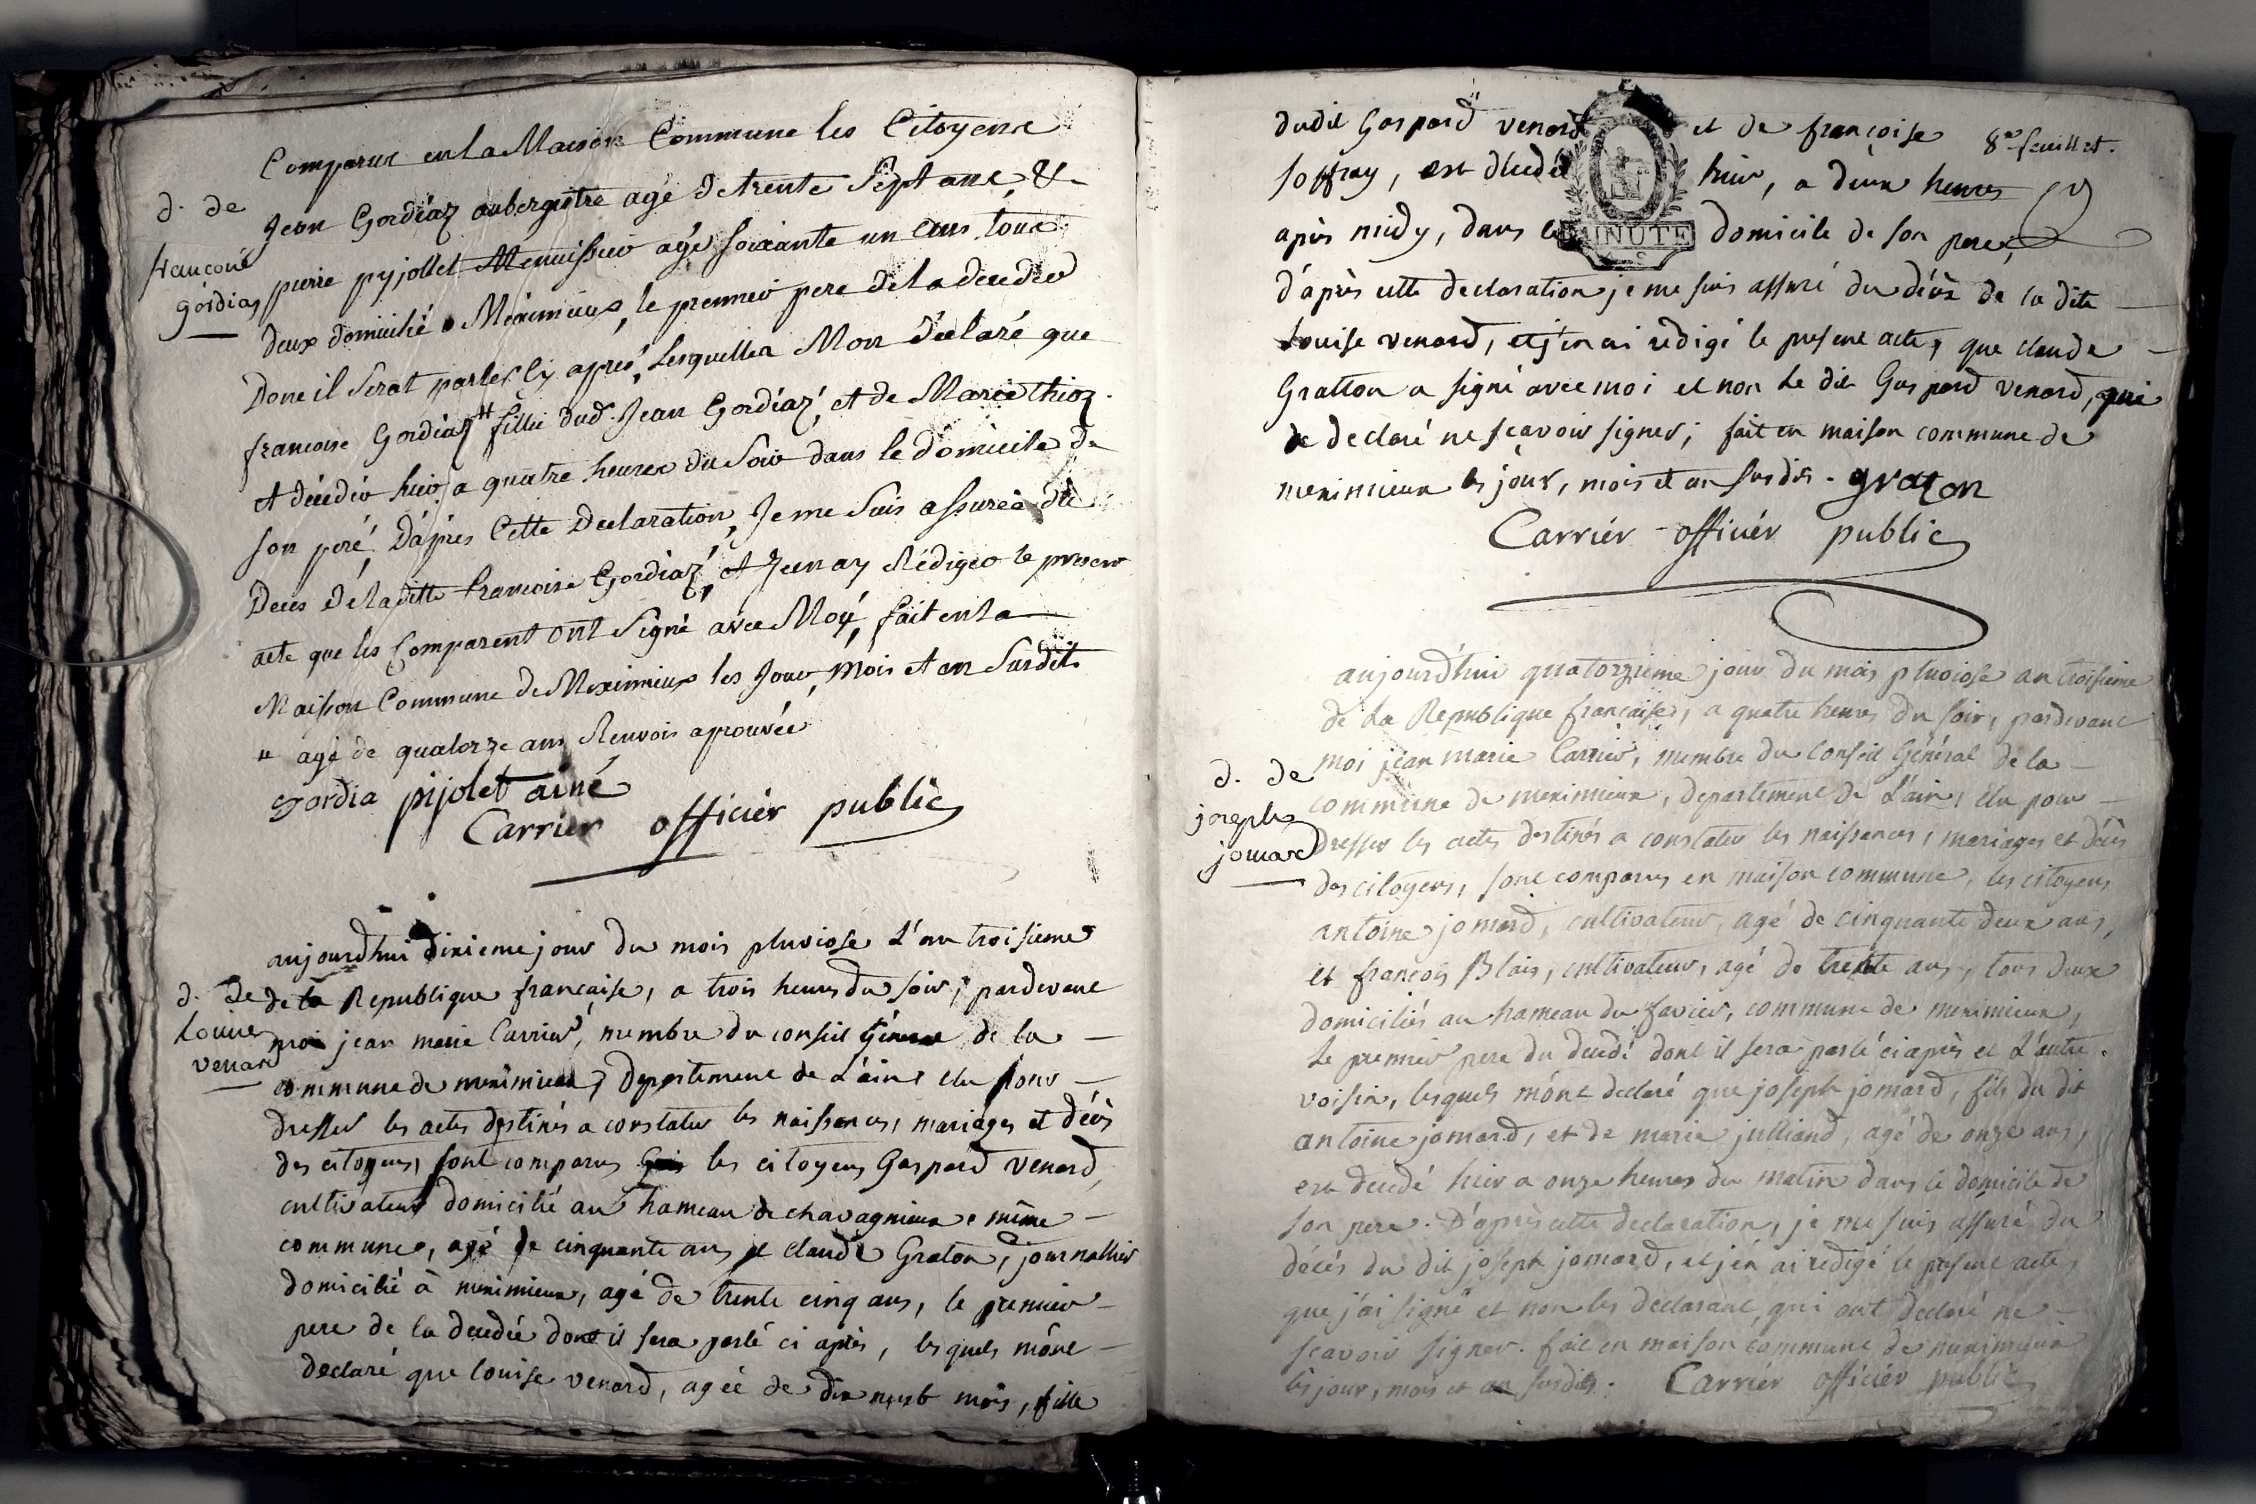 Comparus en la Maison Commune les Citoyens
d. de
francoise
gordiaz
Jean Gordiaz aubergiste agé de trente Sept ans, &
pierre pyjollet Menuissier agé soixante un ans tous
deux domicilié a Meximieux, le premier pere de la decedeé
Dont il Serat parler Cy aprés, lesquelles Mon déclaré que
francoise Gordiaz " fillie dud. Jean Gordiaz, et de Marie thioz
et décédéé hier a quatre heures du Soir dans le domicile de
son peré, D'aprés Cette Declaration, Je me Suis assureé du
Deces De la ditte francoise Gordiaz, et J'en ay Rédigéo le present
acte que les Comparent ont Signé avec Moÿ, fait en la
Maison Commune de Meximieux les Jour, Mois et an Surdits
" agé de quatorze ans Renvois aprouvée
gordia pijolet ainé
Carrier officiér public
aujourdhui dixieme jour du mois pluviose L'an troisieme
d. de
Louise
venard
de la Republique française, a trois heures du soir, pardevant
moi jean marie Carrier, membre du conseil Général de la
commune de meximieux, departement de L'ain, elu pour
dresser les actes destinés a constater les naissances, mariages et décés
des citoyens, sont comparus les citoyens Gaspard venard,
cultivateur domicilié au hameau de chavagnieux même
commune, agé de cinquante ans et claude Graton, journallier
domicilié à meximieux, agé de trente cinq ans, le premier
pere de la decedeé dont il sera parlé ci après, lesquels mônt
declaré que louise venard, agée de dix neuf mois, fille
dudit Gaspard venard et de françoise
8e feuillet.
soffray, est décédéé hier, a deux heures
après midy, dans le domicile de son pere,
MINUTE
d'après cette declaration je me suis assuré du décès de la dite
Louise venard, et j'en ai redigé le present acte, que claude
Gratton a signé avec moi et non le dit Gaspard venard, qui
a declaré ne sçavoir signer; fait en maison commune de
meximieux les jour, mois et an susdits. graton
Carriér officiér public
aujourd'hui quatorzieme jour du mois pluviose an troisieme
de la Republique française, a quatre heures du soir, pardevant
moi jean marie Carrier, membre du conseil Général de la
d. de
joseph
jomard
commune de meximieux, departement de L'ain, elu pour
dresser les actes destinés a constater les naissances, mariages et décès
des citoyens, sont comparus en maison commune, les citoyens
antoine jomard, cultivateur, agé de cinquante deux ans,
et françois Blais, cultivateur, agé de trente ans, tous deux
domiciliés au hameau du favier, commune de meximieux,
Le premier pere du decedé dont il sera parlé ci après et L'autre
voisin, lesquels mônt declaré que joseph jomard, fils du dit
antoine jomard, et de marie julliand, agé de onze ans,
est decedé hier a onze heures du matin dans le domicile de
son pere. D'après cette declaration, je me suis assuré du
décès du dit joseph jomard, et j'en ai redigé le present acte,
que j'ai signé et non les declarant, qui ont declaré ne
sçavoir signer. fait en maison commune de meximieux
les jour, mois et an susdits. Carriér officiér public